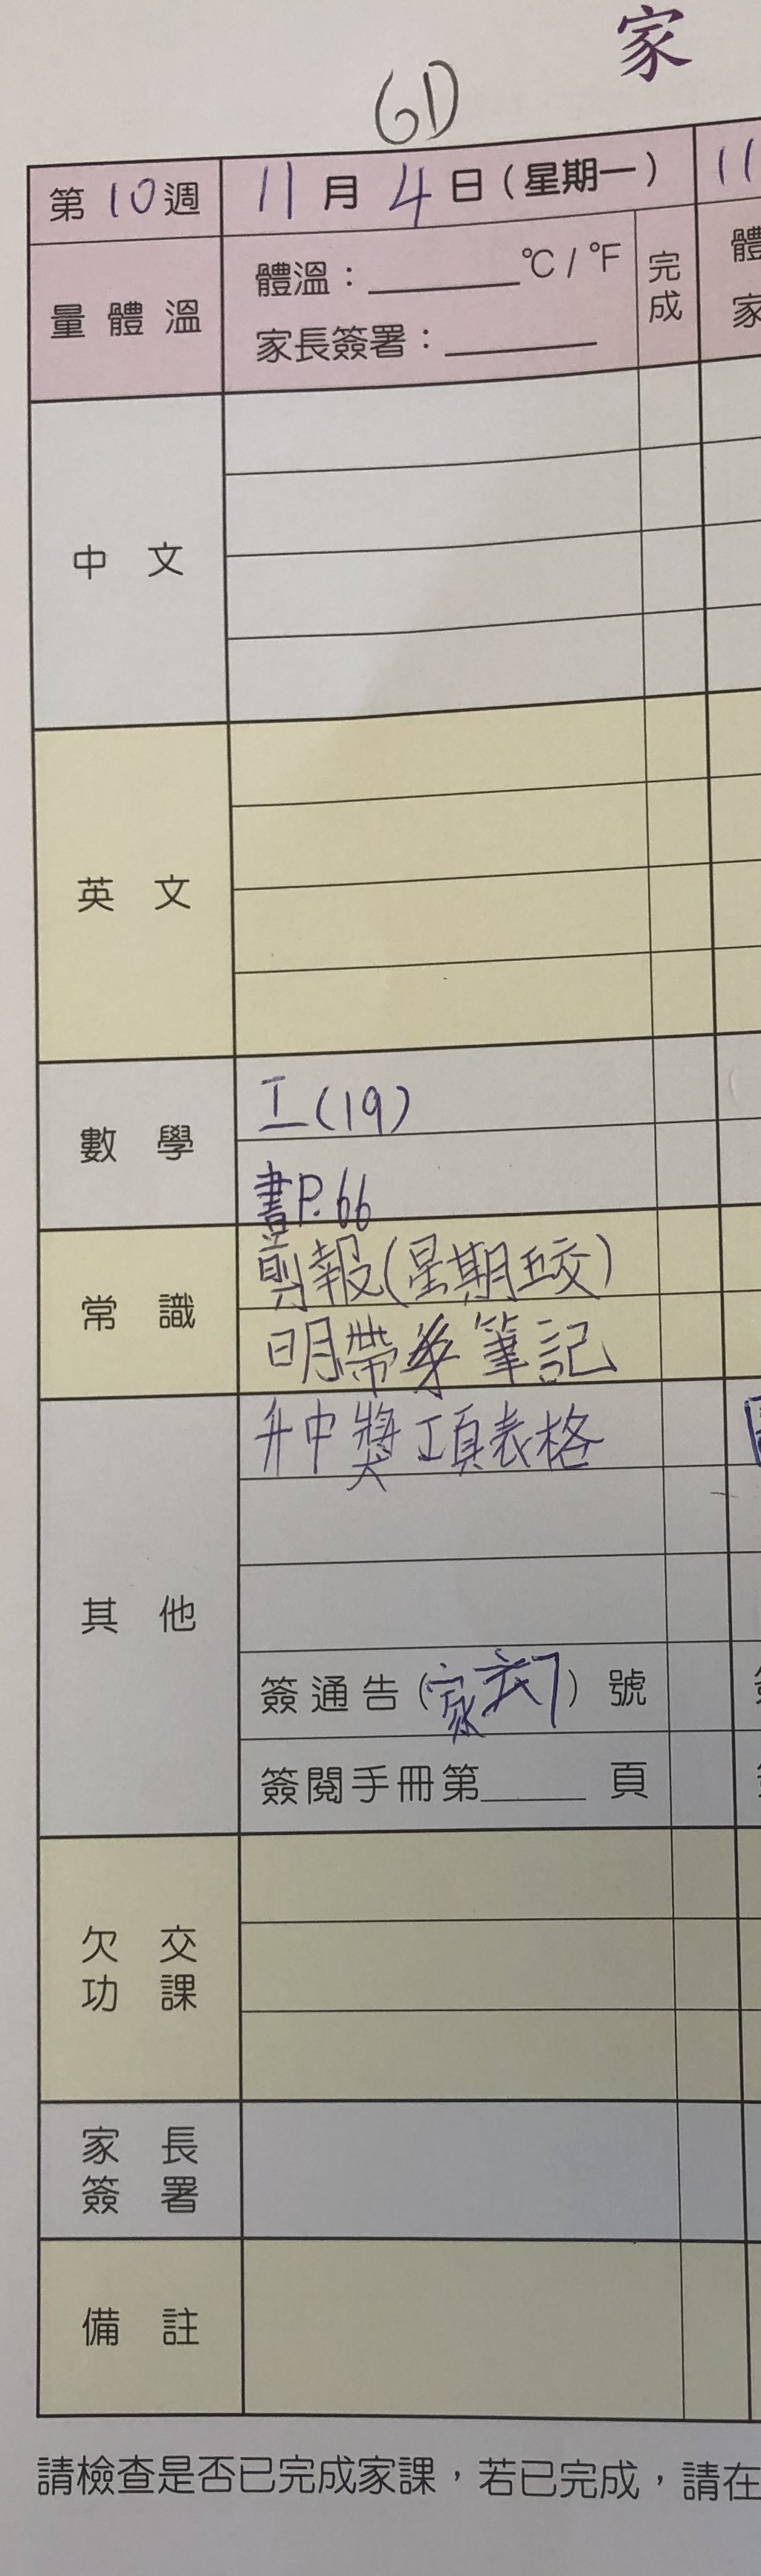 家
6D
第10週 11月4日(星期一) 11
量體溫 體溫：______°C / °F 完成
家長簽署：______
中文
英文
數學 工(19)
書P.66
常識 剪報(星期五交)
明帶筆記
其他 升中獎項表格
簽通告(家)號
簽閱手冊第______頁
欠交功課
家長簽署
備註
請檢查是否已完成家課，若已完成，請在